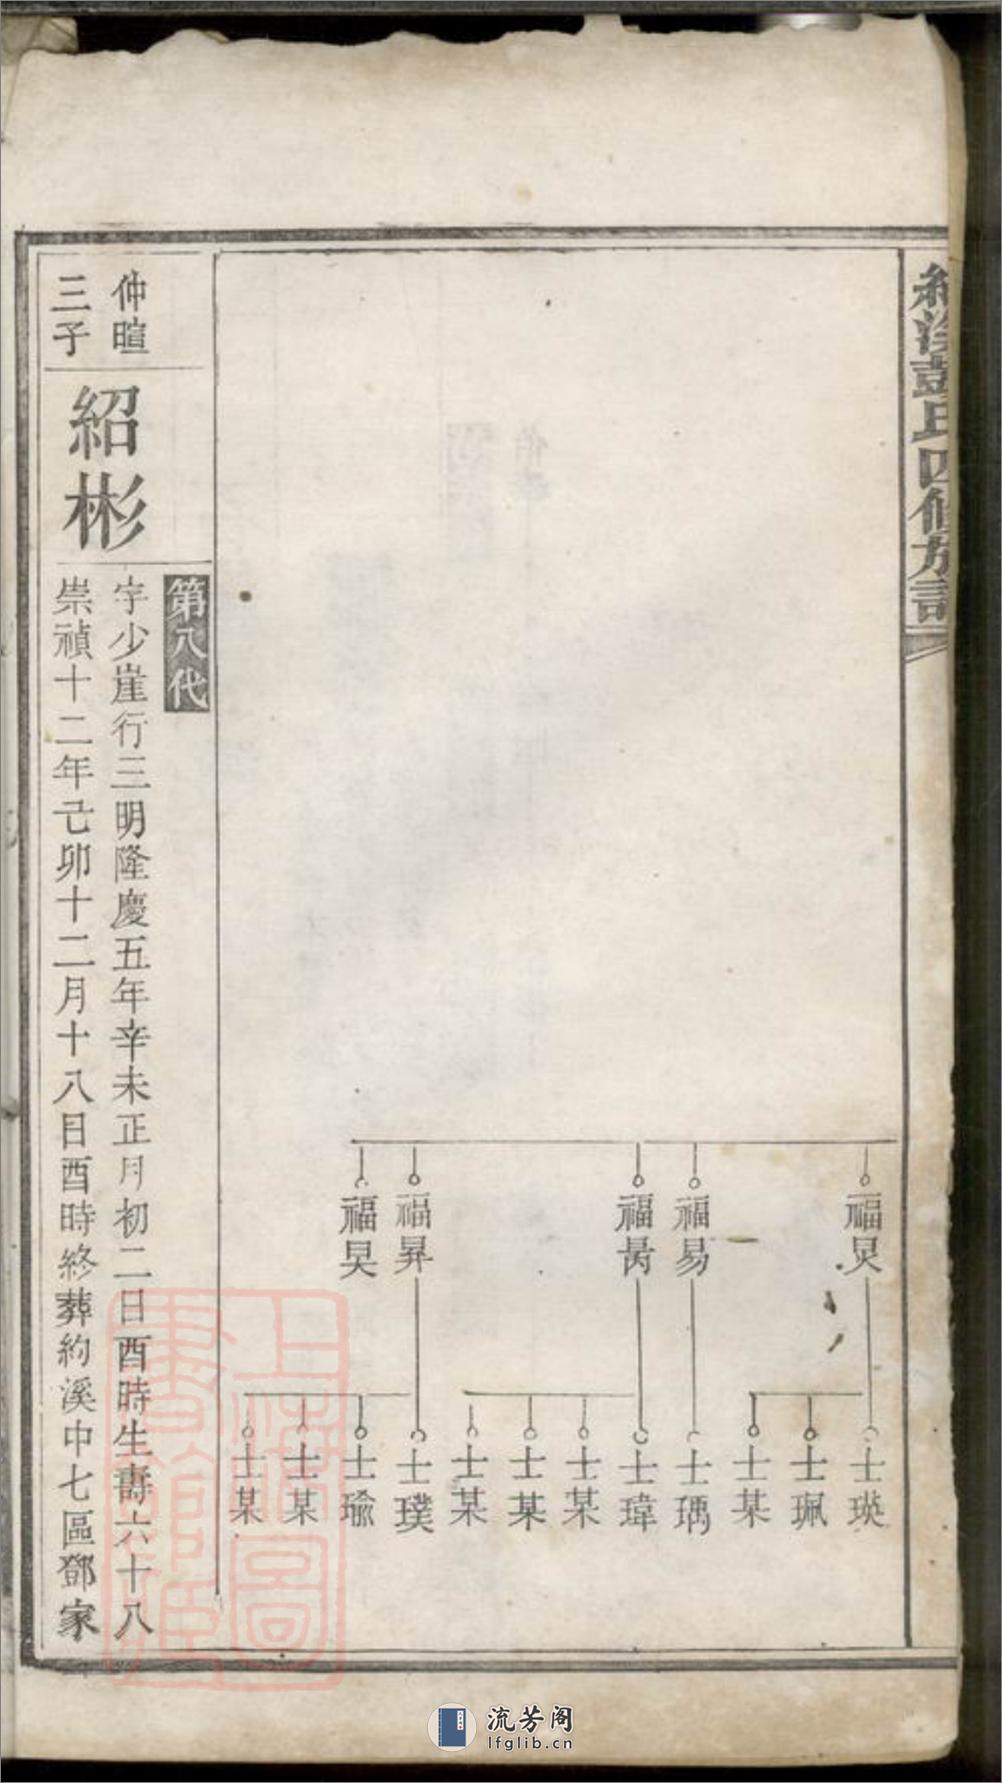 約溪彭氏四修族譜
福炅
福易
福昺
福昇
福昊
士瑛
士珮
士某
士瑀
士瑋
士某
士某
士某
士璞
士瑜
士某
士某
第八代
仲暄
三子
紹彬
字少崖行三明隆慶五年辛未正月初二日酉時生壽六十八
崇禎十二年己卯十二月十八日酉時終葬約溪中七區鄧家
上海圖書館藏
流芳阁
lfglib.cn